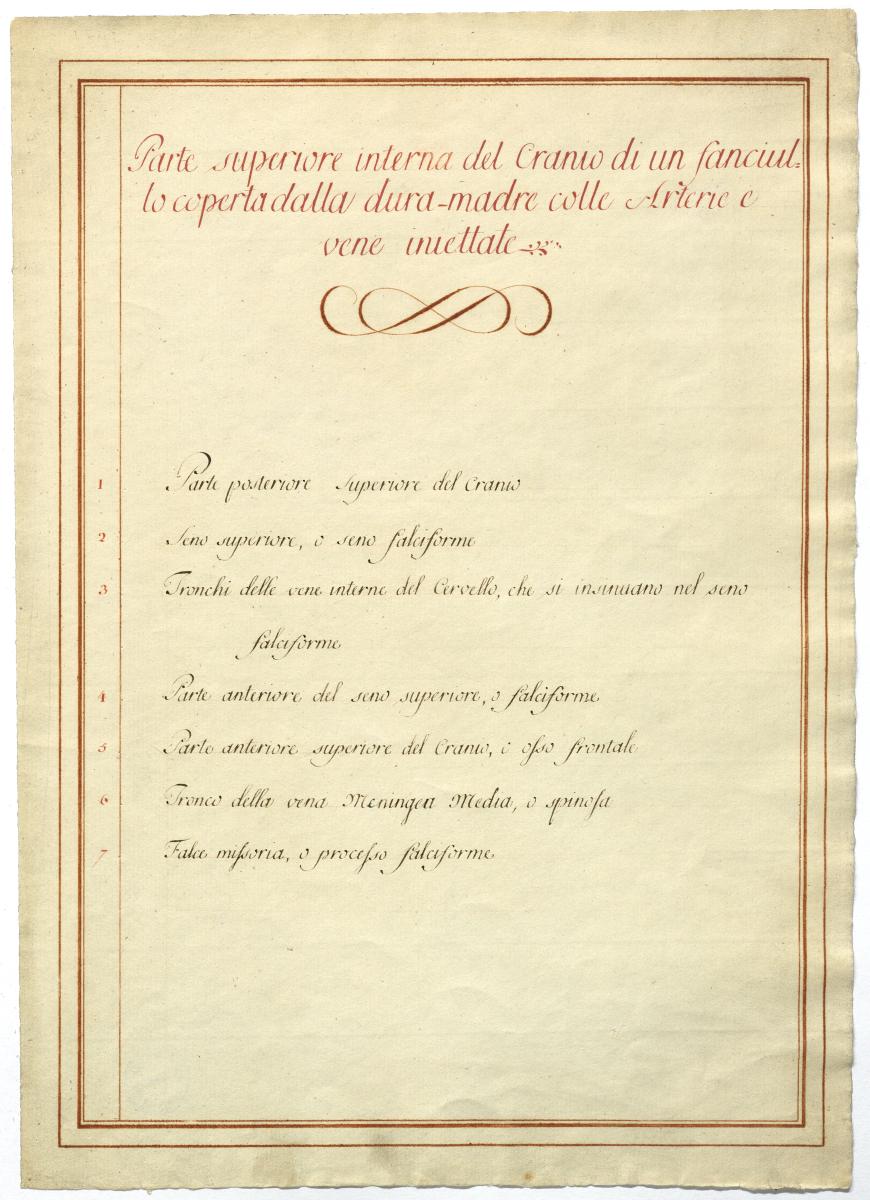 Parte superiore interna del Cranio di un fanciul=
lo coperta dalla dura-madre colle Arterie e
vene iniettate
1 Parte posteriore superiore del Cranio
2 Seno superiore, o seno falciforme
3 Tronchi delle vene interne del Cervello, che si insinuano nel seno
falciforme
4 Parte anteriore del seno superiore, o falciforme
5 Parte anteriore superiore del Cranio, o osso frontale
6 Tronco della vena Meningea Media, o spinosa
7 Falce missoria, o processo falciforme